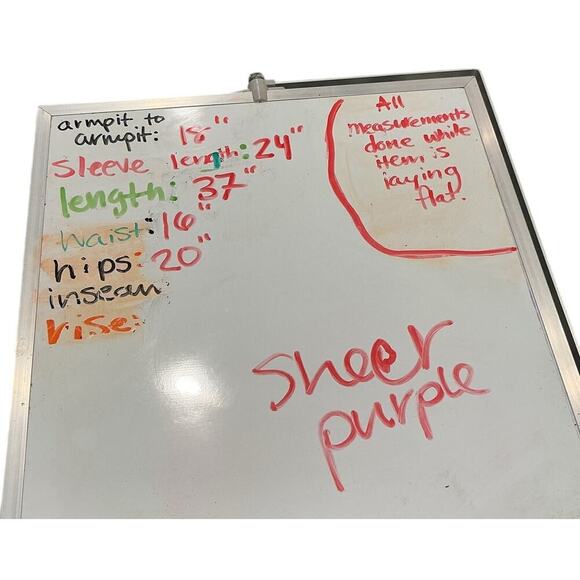 armpit to
armpit: 18"
sleeve length: 24"
length: 37"
waist: 16"
hips: 20"
inseam
rise:
All
measurements
done while
item is
laying
flat.
sheer
purple